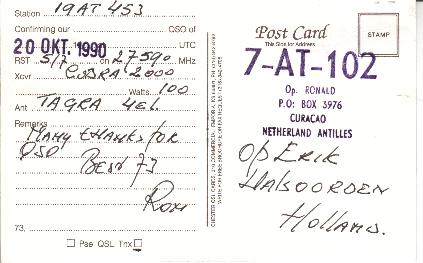 Station 19AT 453
Confirming our QSO of
20 OKT. 1990 UTC
RST 5/7 on 27590 MHz
Xcvr COBRA 2000
Watts 100
Ant TAGRA 4EL.
Remarks
Many thanks for
QSO
Best 73
Ron
73,
Pse QSL Tnx
Post Card
This Side for Address
STAMP
7-AT-102
Op. RONALD
P.O: BOX 3976
CURACAO
NETHERLAND ANTILLES
Op Erik
Halsoorden
Holland.